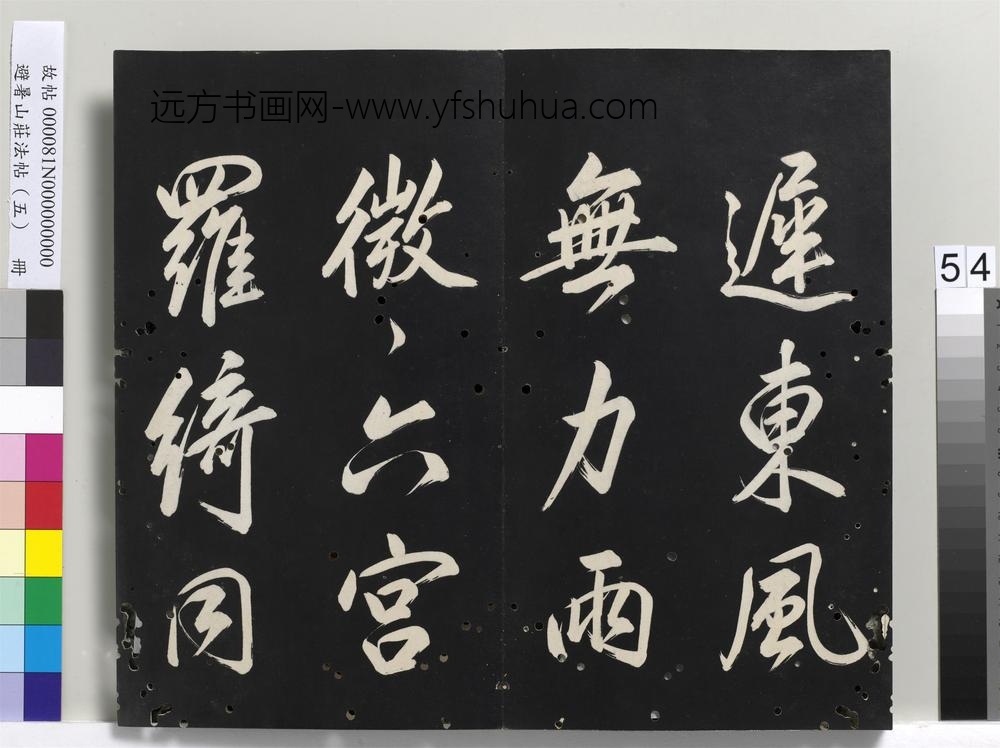 遲東風
無力雨
微〻六宮
羅綺同
远方书画网-www.yfshuhua.com
故帖000081N000000000
避暑山莊法帖（五） 冊
54